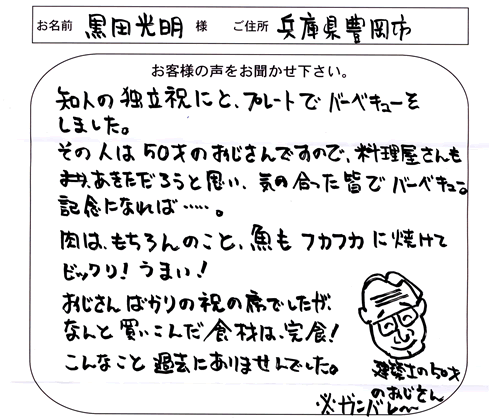 お名前 黒田光明 様 ご住所 兵庫県豊岡市
お客様の声をお聞かせ下さい。
知人の独立祝にと、プレートでバーベキューを
しました。
その人は50才のおじさんですので、料理屋さんも
あきただろうと思い、気の合った皆でバーベキュー。
記念になれば……。
肉は、もちろんのこと、魚もフカフカに焼けて
ビックリ!うまい!
おじさんばかりの祝の席でしたが、
なんと買いこんだ食材は、完食!
こんなこと過去にありませんでした。
建築士の50才
のおじさん
※ガンバレ〜